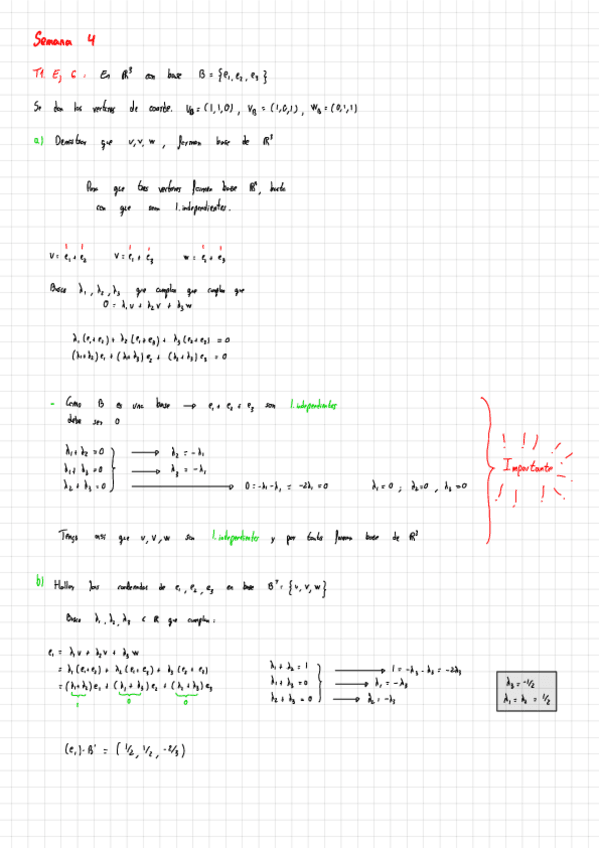 Semana 4
T1. Ej 6. En R³ con base B = {e₁, e₂, e₃}
Se dan los vectores de coorde. U_B = (1,1,0), V_B = (1,0,1), W_B = (0,1,1)
a) Demostrar que u, v, w, forman base de R³
Para que tres vectores formen base R³, basta
con que sean l. independientes.
U = e₁ + e₂ V = e₁ + e₃ W = e₂ + e₃
Busco λ₁, λ₂, λ₃ que cumplan que cumplan que
0 = λ₁u + λ₂v + λ₃w
λ₁(e₁+e₂) + λ₂(e₁+e₃) + λ₃(e₂+e₃) = 0
(λ₁+λ₂)e₁ + (λ₁+λ₃)e₂ + (λ₂+λ₃)e₃ = 0
- Como B es una base → e₁ e₂ e₃ son l. independientes
debe ser 0
λ₁+λ₂=0 → λ₂ = -λ₁
λ₁+λ₃=0 → λ₃ = -λ₁
λ₂+λ₃=0 → 0=-λ₁-λ₁ = -2λ₁=0 λ₁=0 ; λ₂=0 , λ₃=0
¡¡¡ Importante !!!
Tengo así que u, v, w son l. independientes y por tanto forman base de R³
b) Hallar las coordenadas de e₁, e₂, e₃ en base B' = {u, v, w}
Busco λ₁, λ₂, λ₃ ∈ R que cumplan:
e₁ = λ₁u + λ₂v + λ₃w
= λ₁(e₁+e₂) + λ₂(e₁+e₃) + λ₃(e₂+e₃)
= (λ₁+λ₂)e₁ + (λ₁+λ₃)e₂ + (λ₂+λ₃)e₃
1 0 0
λ₁+λ₂=1 → 1=-λ₃-λ₃=-2λ₃
λ₁+λ₃=0 → λ₁=-λ₃
λ₂+λ₃=0 → λ₂=-λ₃
λ₃=-1/2
λ₁=λ₂=1/2
(e₁)·B' = (1/2, 1/2, -2/3)